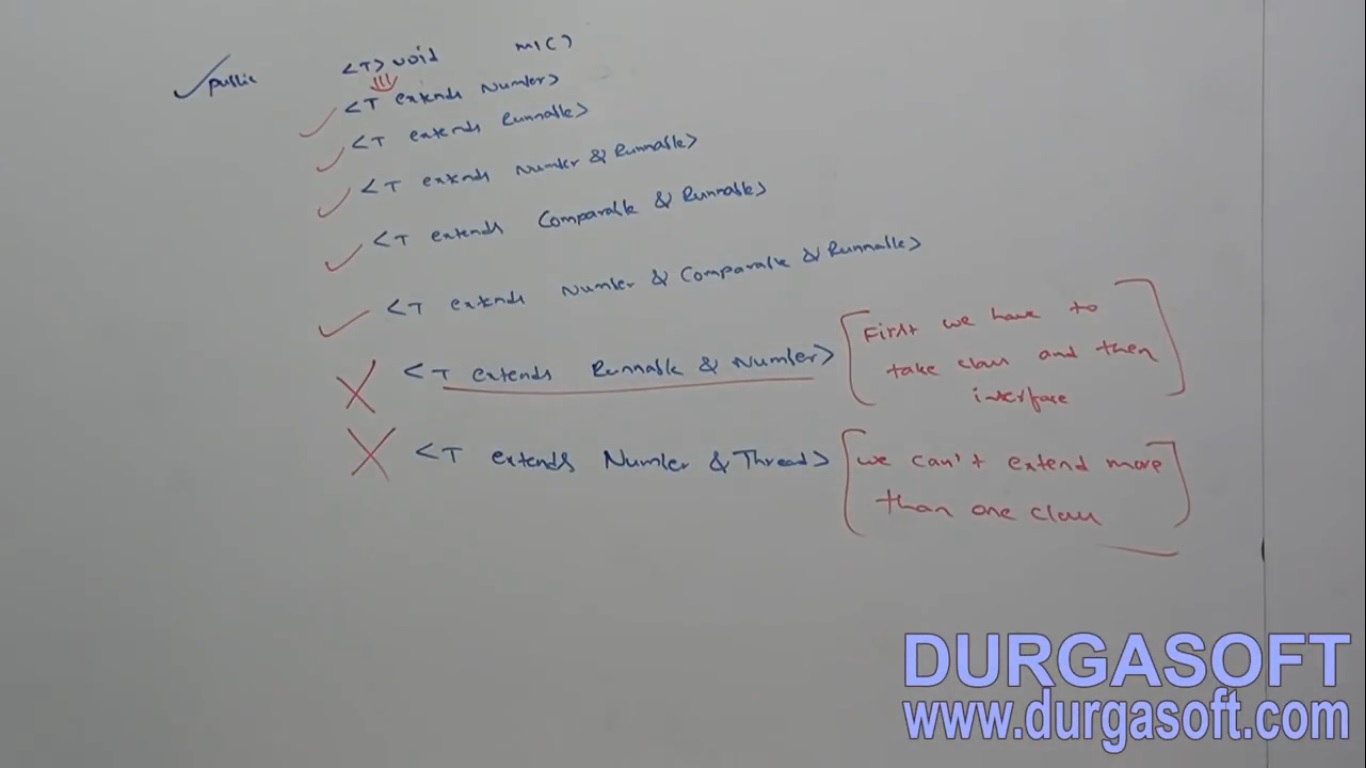 public <T> void m1()
<T extends Number>
<T extends Runnable>
<T extends Number & Runnable>
<T extends Comparable & Runnable>
<T extends Number & Comparable & Runnable>
<T extends Runnable & Number>
First we have to
take class and then
interface
<T extends Number & Thread>
we can't extend more
than one class
DURGASOFT
www.durgasoft.com